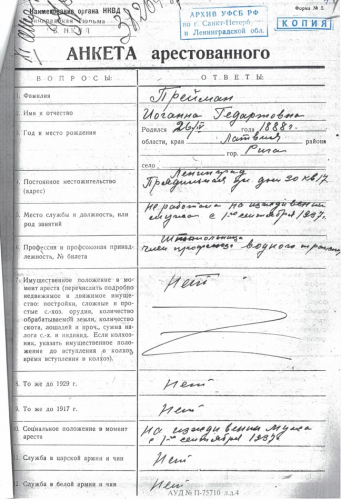 Наименование органа НКВД
Ленинградская тюрьма
НКВД
АРХИВ УФСБ РФ
по г. Санкт-Петерб.
и Ленинградской обл.
Форма № 5
КОПИЯ
АНКЕТА арестованного
ВОПРОСЫ:
ОТВЕТЫ:
1. Фамилия
Прейман
2. Имя и отчество
Иоганна Гедартовна
3. Год и место рождения
Родился 26/II года 1888г.
области, края Латвия района
гор. Рига
село
4. Постоянное местожительство
(адрес)
Ленинград
Прядильная ул дом 30 кв 17
5. Место службы и должность, или
род занятий
не работала на иждивении
мужа с 1-го сентября 1937г.
6. Профессия и профсоюзная принад-
лежность, № билета
член профсоюза водного
7. Имущественное положение в мо-
мент ареста (перечислить подробно
недвижимое и движимое имуще-
ство: постройки, сложные и про-
стые с.-хоз. орудия, количество
обрабатываемой земли, количество
скота, лошадей и проч., сумма на-
лога с.-х. и индивид. Если колхоз-
ник, указать имущественное поло-
жение до вступления в колхоз,
время вступления в колхоз).
Нет
8. То же до 1929 г.
Нет
9. То же до 1917 г.
Нет
10. Социальное положение в момент
ареста
На иждивении мужа
с 1-го сентября 1937г
11. Служба в царской армии и чин
Нет
12. Служба в белой армии и чин
Нет
АУД № П-75710 л.д.4